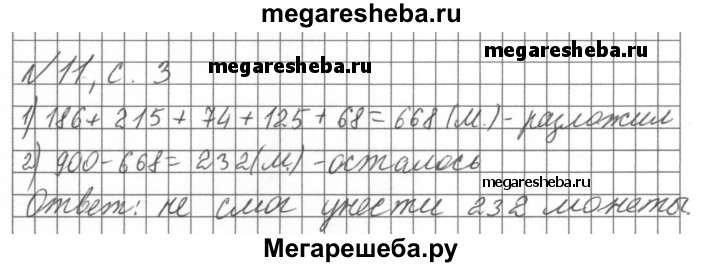 megaresheba.ru
megaresheba.ru
№ 11, с. 3
megaresheba.ru
1) 186+ 215 + 74 + 125 + 68 = 668 (м.) - разложил
2) 900 - 668 = 232 (м.) - осталось
megaresheba.ru
Ответ: не смог унести 232 монеты.
Мегарешеба.ру